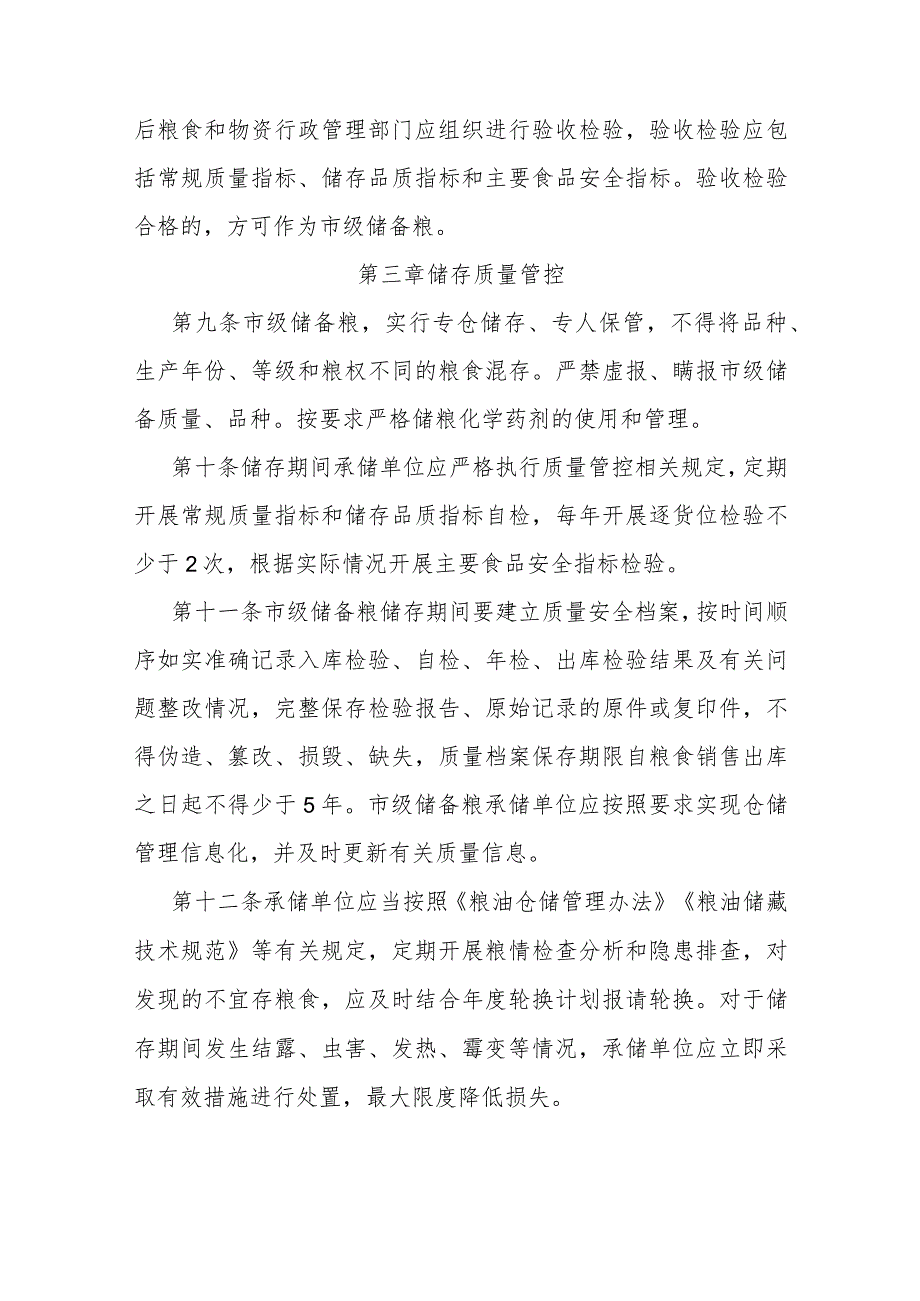 后粮食和物资行政管理部门应组织进行验收检验，验收检验应包
括常规质量指标、储存品质指标和主要食品安全指标。验收检验
合格的，方可作为市级储备粮。
第三章储存质量管控
第九条市级储备粮，实行专仓储存、专人保管，不得将品种、
生产年份、等级和粮权不同的粮食混存。严禁虚报、瞒报市级储
备质量、品种。按要求严格储粮化学药剂的使用和管理。
第十条储存期间承储单位应严格执行质量管控相关规定，定期
开展常规质量指标和储存品质指标自检，每年开展逐货位检验不
少于2次，根据实际情况开展主要食品安全指标检验。
第十一条市级储备粮储存期间要建立质量安全档案，按时间顺
序如实准确记录入库检验、自检、年检、出库检验结果及有关问
题整改情况，完整保存检验报告、原始记录的原件或复印件，不
得伪造、篡改、损毁、缺失，质量档案保存期限自粮食销售出库
之日起不得少于5年。市级储备粮承储单位应按照要求实现仓储
管理信息化，并及时更新有关质量信息。
第十二条承储单位应当按照《粮油仓储管理办法》《粮油储藏
技术规范》等有关规定，定期开展粮情检查分析和隐患排查，对
发现的不宜存粮食，应及时结合年度轮换计划报请轮换。对于储
存期间发生结露、虫害、发热、霉变等情况，承储单位应立即采
取有效措施进行处置，最大限度降低损失。